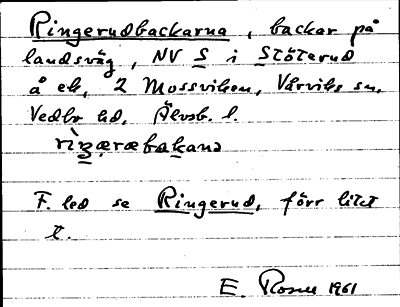 Ringerudbackarna, backar på
landsväg, NV S i Stöterud
å ek, 2 Mossviken, Värviks sn,
Vedbo hd, Älvsb. l.
rìŋæræbakana
F. led se Ringerud, förr litet
t.
E. Rosm 1961